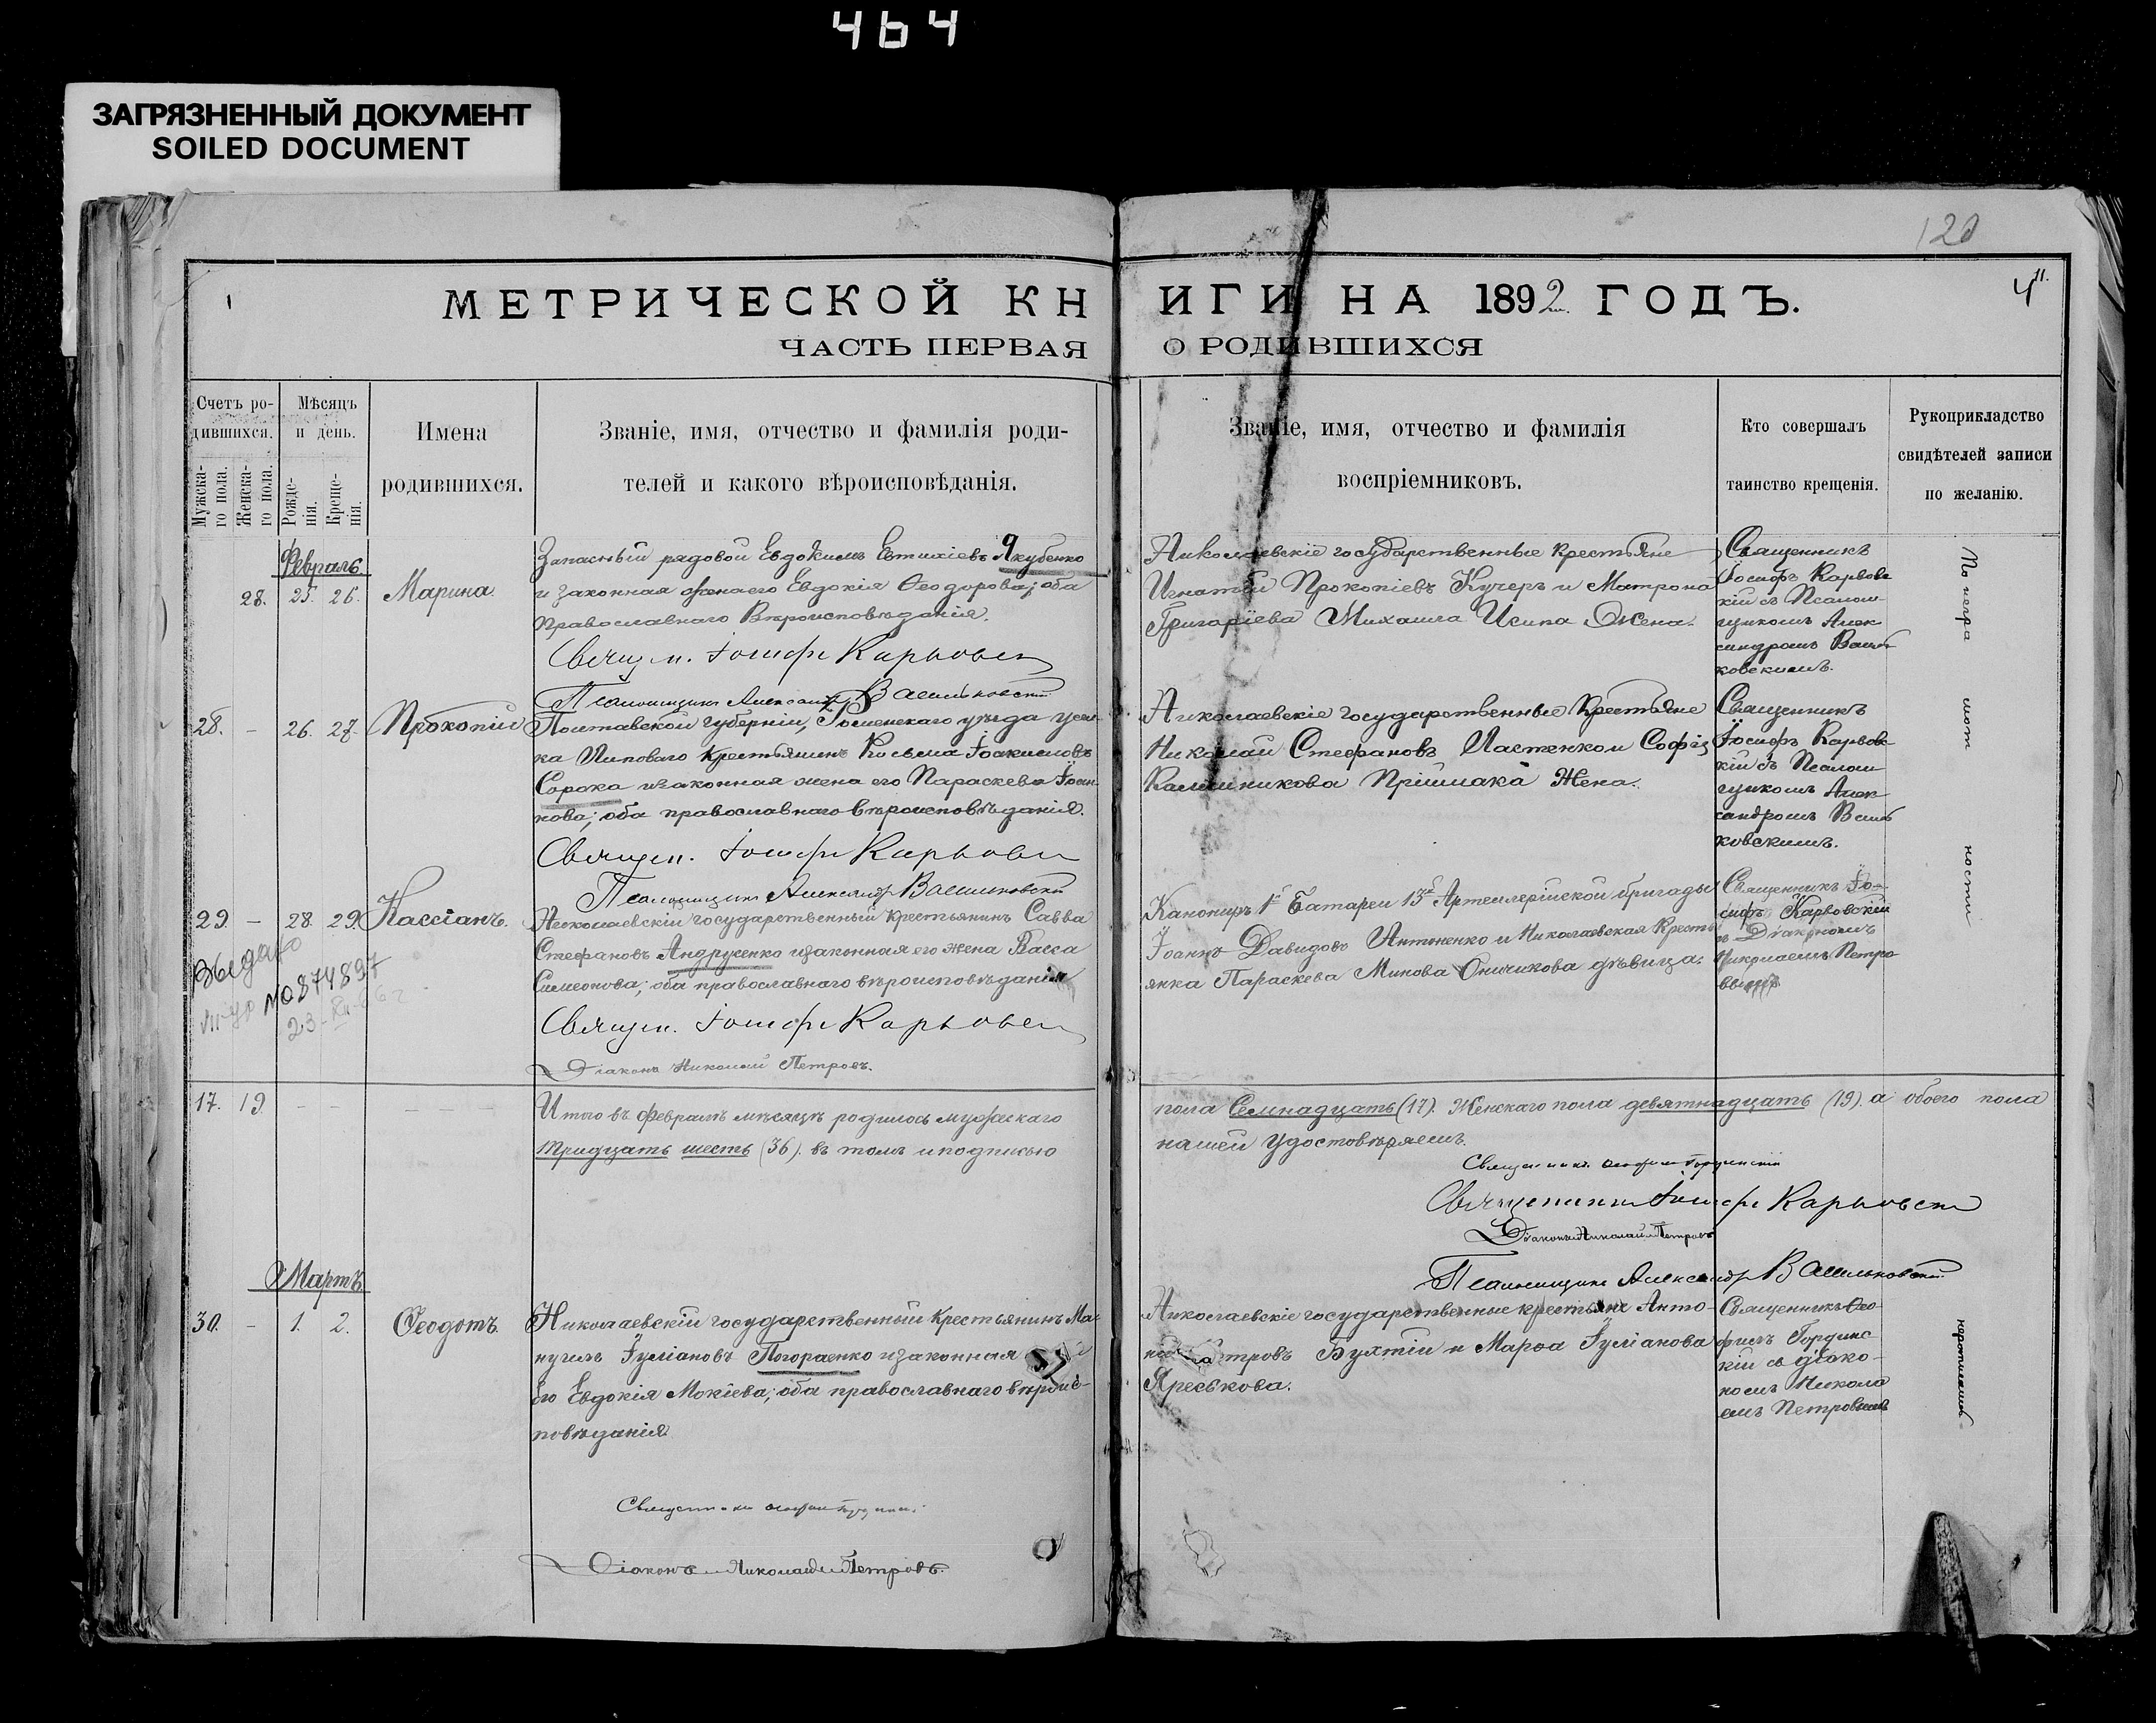 464
ЗАГРЯЗНЕННЫЙ ДОКУМЕНТ
SOILED DOCUMENT
120
МЕТРИЧЕСКОЙ КНИГИ НА 1892 ГОДЪ.
ЧАСТЬ ПЕРВАЯ О РОДИВШИХСЯ
Счетъ ро-
дившихся.
Мужска-
го пола.
Женска-
го пола.
Мѣсяцъ
и день.
Рожде-
нія.
Креще-
нія.
Имена
родившихся.
Званіе, имя, отчество и фамилія роди-
телей и какого вѣроисповѣданія.
Званіе, имя, отчество и фамилія
воспріемниковъ.
Кто совершалъ
таинство крещенія.
Рукоприкладство
свидѣтелей записи
по желанію.
Февраль
28. 25. 26. Марина.
Запасный рядовой Евдокимъ Евтихіевъ Якубенко
и законная жена его Евдокія Ѳеодорова; оба
Православнаго Вѣроисповѣданія.
Священ. Іосифъ Карвовск
Псаломщикъ Александръ Васильковскій
Николаевскіе государственные крестьяне
Игнатій Прокопіевъ Кучеръ и Матрона
Григоріева Михаила Исипа Жена.
Священникъ
Іосифъ Карвовс
кій съ Псалом-
щикомъ Алек
сандромъ Василь
ковскимъ.
28. - 26. 27. Прокопій
Полтавской губерніи, Роменскаго уѣзда
ка Липоваго Крестьянинъ Косьма Іоакимовъ
Сорока и законная жена его Параскева
нова; оба православнаго вѣроисповѣданія.
Священ. Іосифъ Карвовск
Псаломщикъ Александръ Васильковскій
Николаевскіе государственные Крестьяне
Николай Стефановъ и Софія
Калинникова Пріймака Жена.
Священникъ
Іосифъ Карвовс
кій съ Псалом
щикомъ Алек
сандромъ Василь
ковскимъ.
29. - 28. 29. Кассіанъ.
Выдано
№ 874897
Николаевскій государственный крестьянинъ Савва
Стефановъ Андрусенко и законная его жена Васса
Симеонова; оба православнаго вѣроисповѣданія
Священ. Іосифъ Карвовск
Діаконъ Николай Петровъ.
Канониръ 1й Батареи 13й Артиллерійской бригады
Іоаннъ Давидовъ Антоненко и Николаевская Кресть
янка Параскева Минова Оничкова дѣвица.
Священникъ Іо-
сифъ Карвовскій
съ Діакономъ
Николаемъ Петро
вымъ
17. 19. - - - - -
Итого въ февралѣ мѣсяцѣ родилось мужскаго
пола Семнадцать (17). Женскаго пола девятнадцать (19). а обоего пола
тридцать шесть (36). въ томъ и подписью
нашей удостовѣряемъ.
Священникъ Іосифъ Карвовск
Діаконъ Николай Петровъ
Псаломщикъ Александръ Васильковскій
Мартъ
30. - 1. 2. Ѳеодотъ.
Николаевскій государственный Крестьянинъ Ма-
нуилъ Іуліановъ Погораенко и законная
его Евдокія Мокіева; оба православнаго вѣроис-
повѣданія.
Діаконъ Николай Петровъ.
Николаевскіе государственные крестьяне Анто-
Бухтій и Марѳа Іуліанова
Яреськова.
Священникъ Ѳео
филъ Гординс
кій съ діако-
номъ Никола
емъ Петровымъ